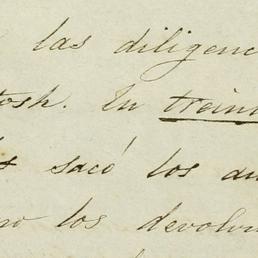 las diligenc
tosh. En trein
sacó los au
no los devolv